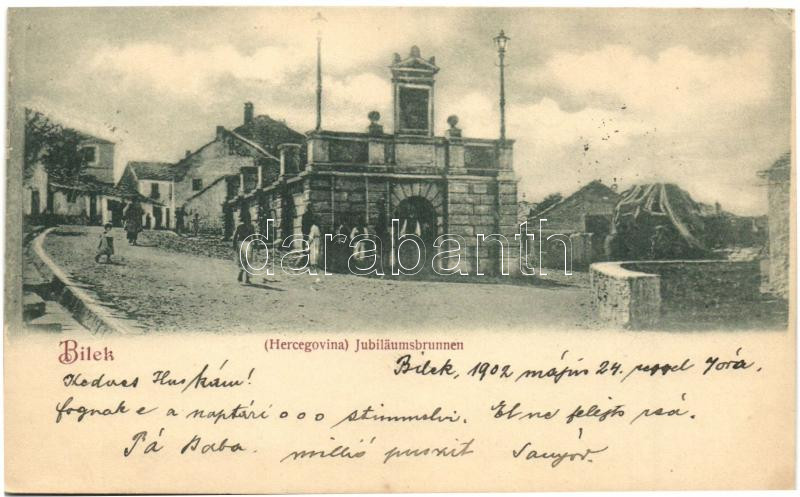 darabanth
(Hercegovina) Jubiläumsbrunnen
Bilek
Bilek, 1902 május 24. reggel 7 óra.
Kedves Huskám!
fognak e a naptári o o o stimmelni. El ne felejts
Pá Baba. millió puszit Sanyód.